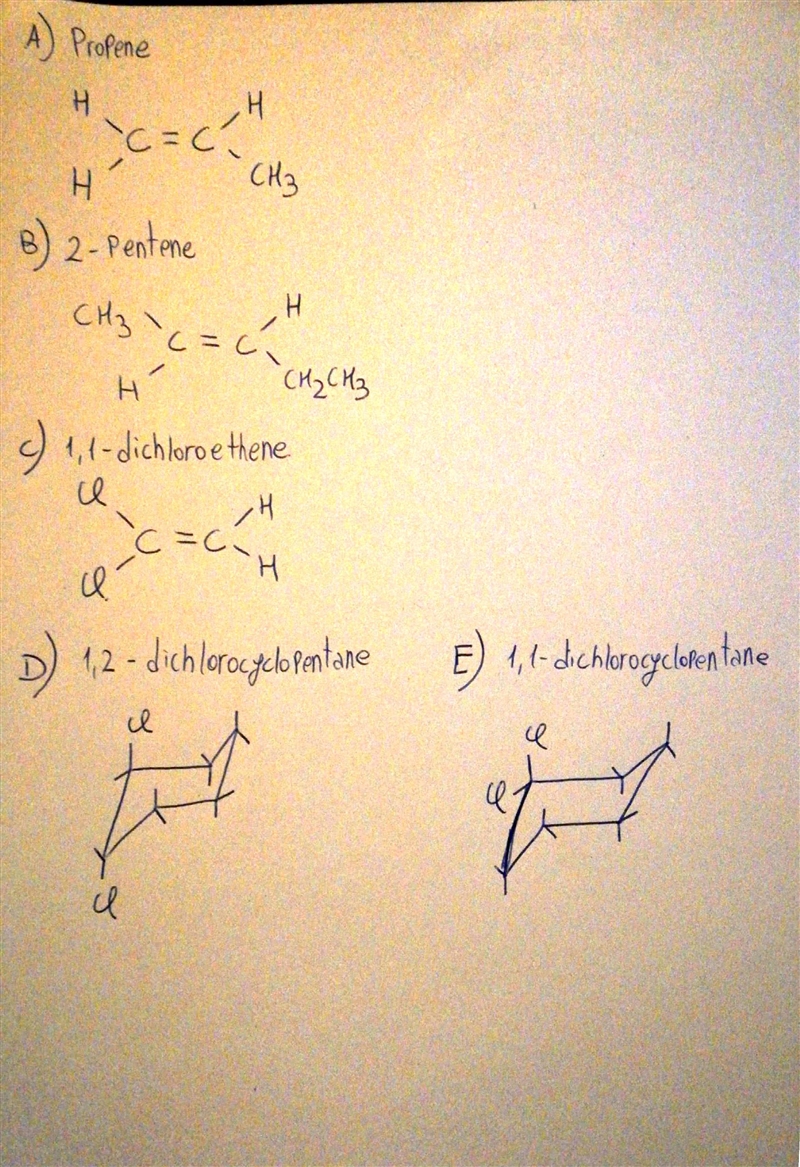 A) Propene
H H
C = C
H CH3
B) 2-Pentene
CH3 H
C = C
H CH2CH3
C) 1,1-dichloroethene
Cl H
C = C
Cl H
D) 1,2-dichlorocyclopentane E) 1,1-dichlorocyclopentane
Cl Cl
Cl
Cl